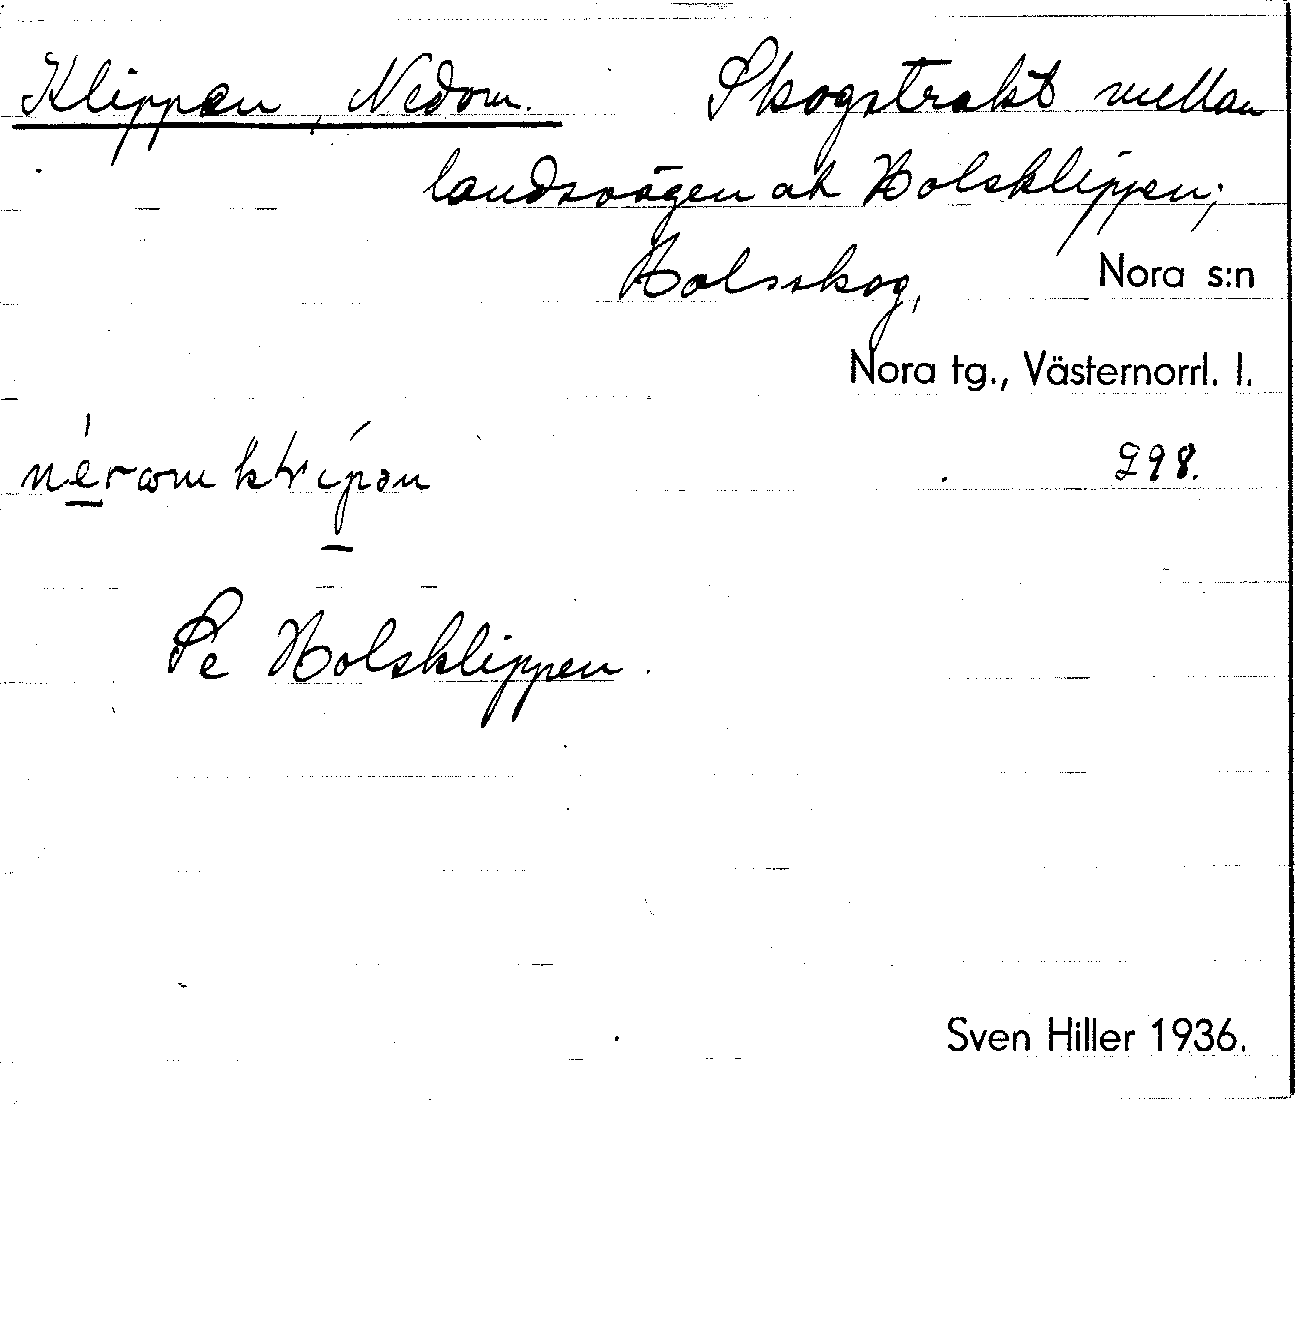 Klippen, Nedom. Skogstrakt mellan
landsvägen ok Holsklippen;
Holsskog, Nora s:n
Nora tg., Västernorrl. l.
298.
Se Holsklippen.
Sven Hiller 1936.